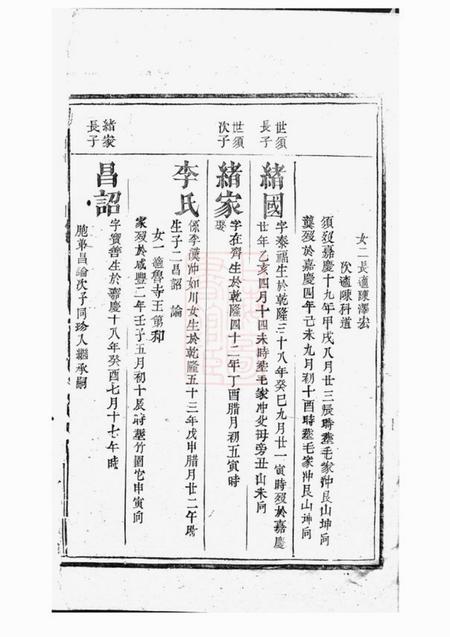 女二長適陳澤宏
次適陳科道
須歿嘉慶十九年甲戌八月廿三辰時塟毛家沖艮山坤向
龔歿於嘉慶四年己未九月初十酉時塟毛家沖艮山坤向
世須
長子
緒國
字泰福生於乾隆三十八年癸巳九月廿一寅時歿於嘉慶
廿年乙亥四月十四未時塟毛家沖父母旁丑山未向
世須
次子
緒家
字在齊生於乾隆四十二年丁酉腊月初五寅時
娶
李氏
係李漢沖如川女生於乾隆五十三年戊申腊月廿二午時
生子二昌詔 論
女一適魯寺王第和
家歿於咸豐二年壬子五月初十辰時塟竹園它申寅向
緒家
長子
昌詔
字寶善生於嘉慶十八年癸酉七月十七午時
胞弟昌論次子同珍入繼承嗣